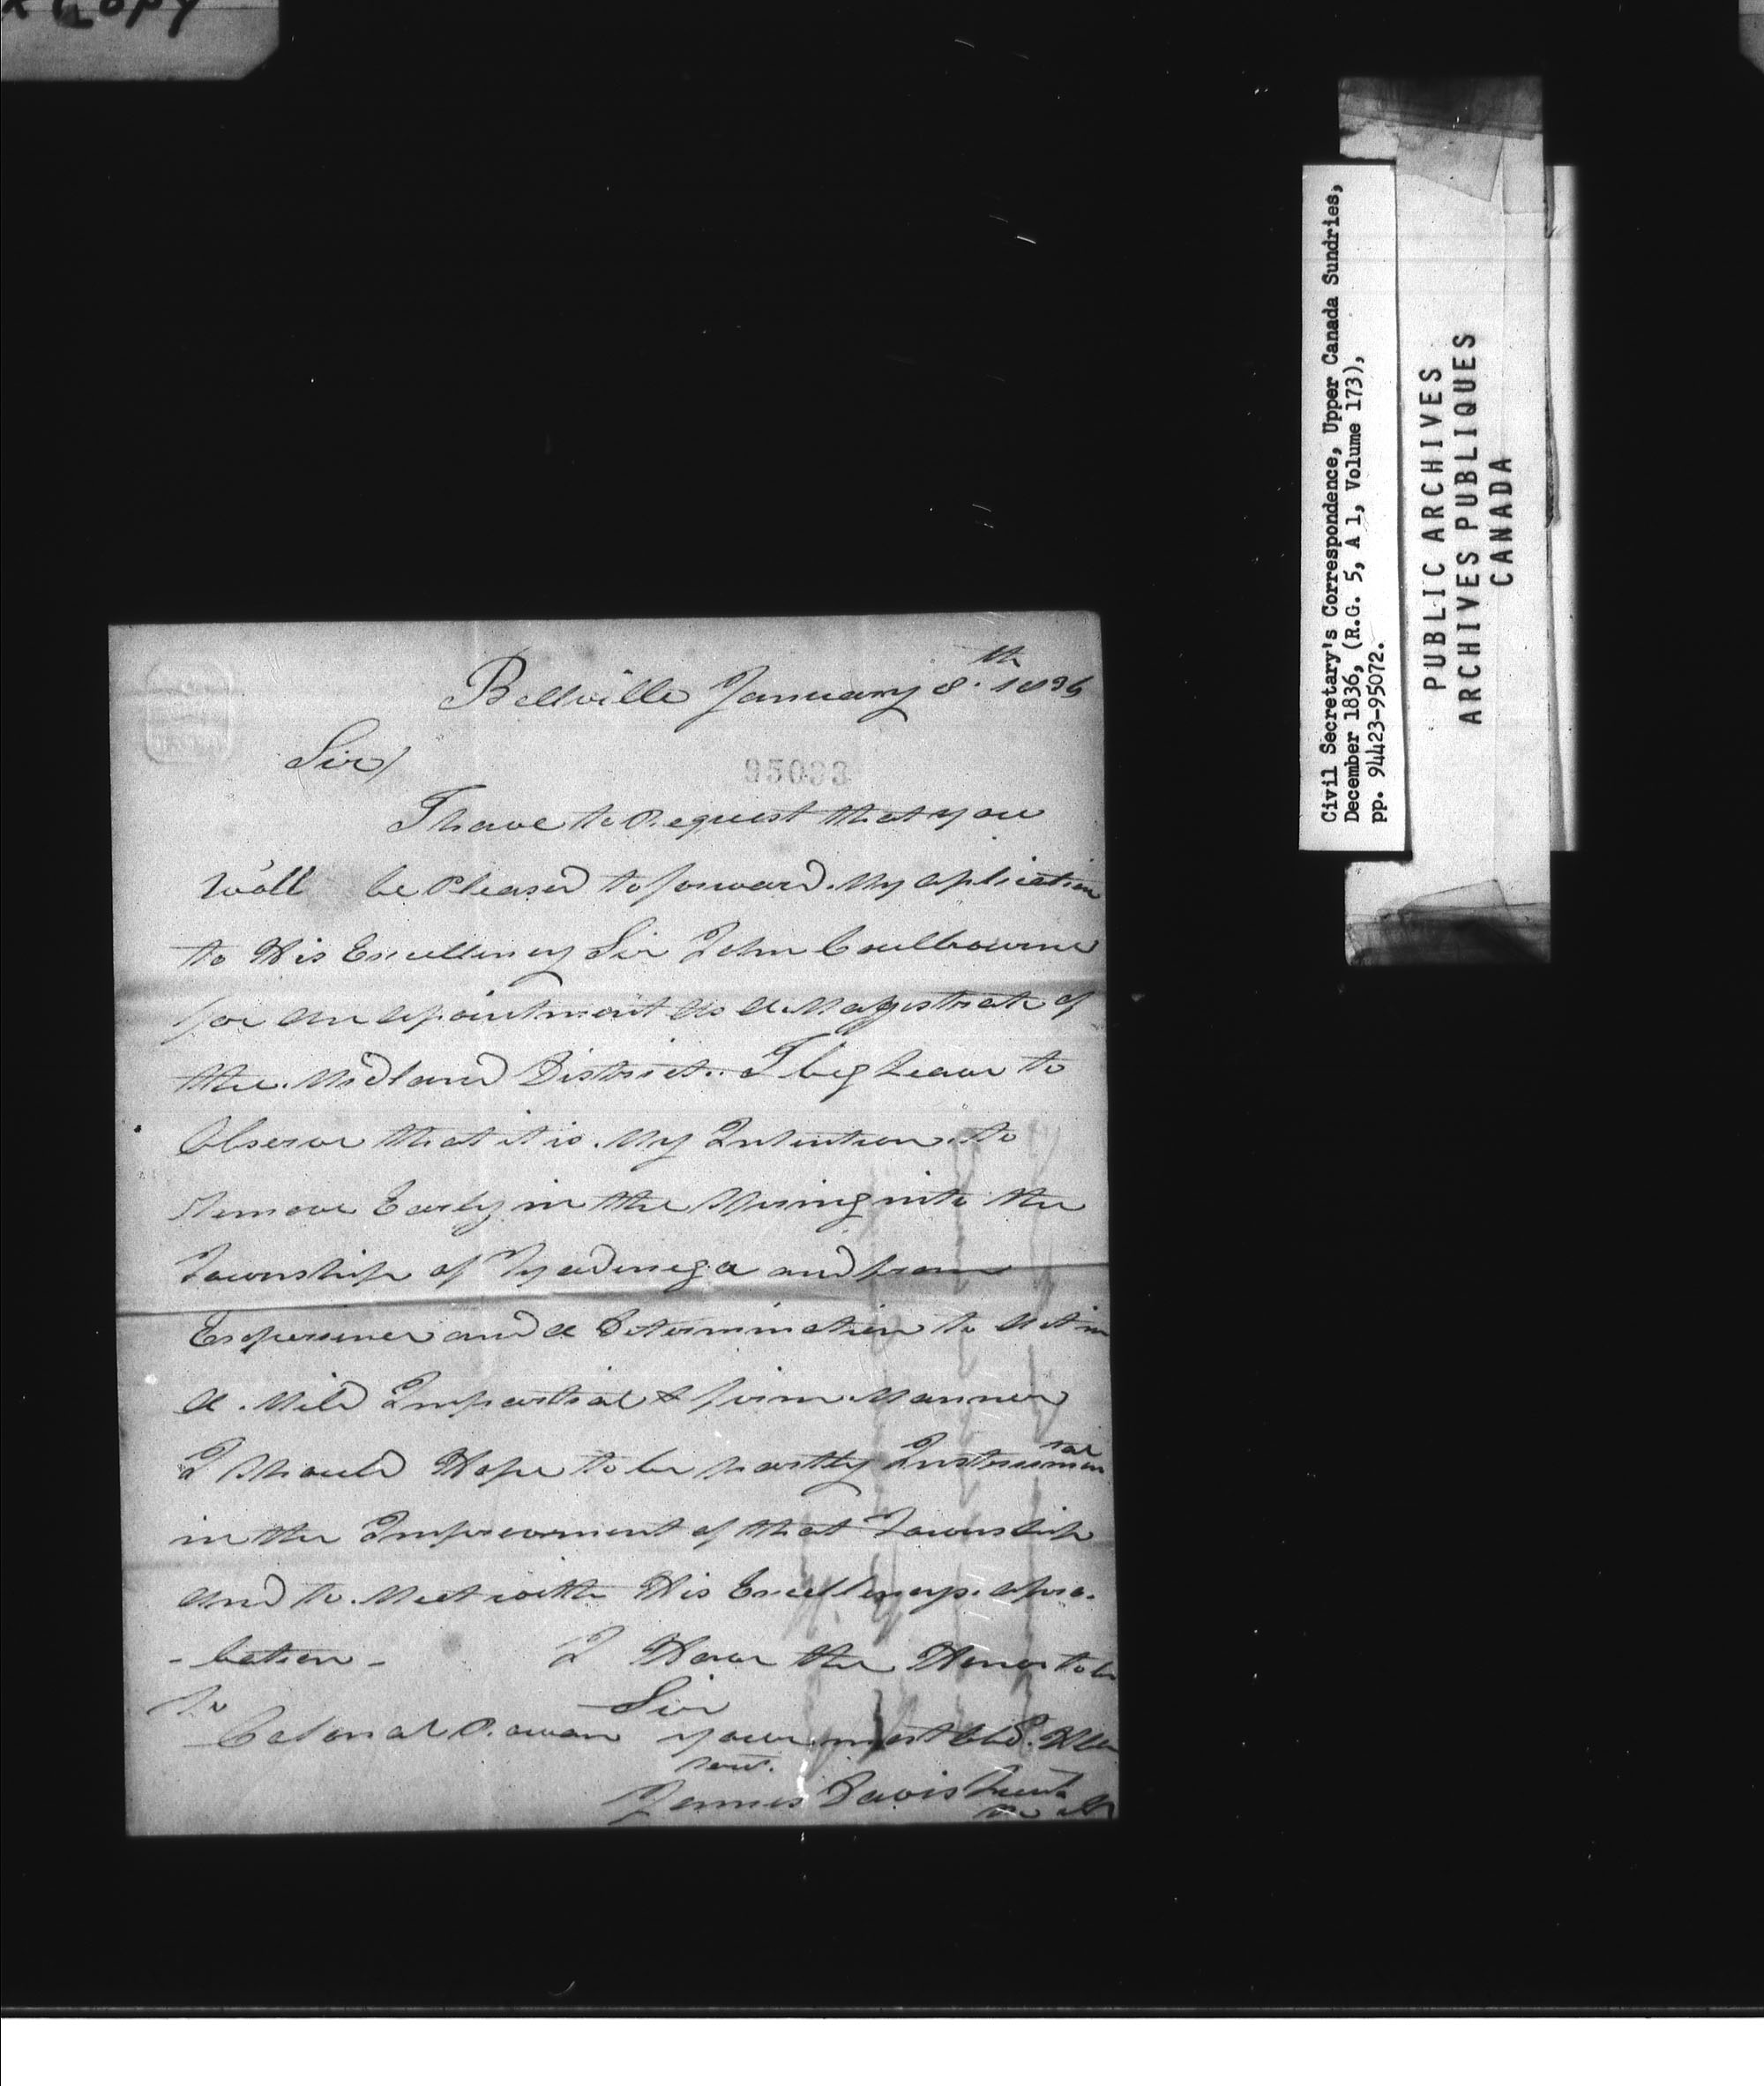 Copy
Bellville January 8th 1836
Sir/
95033
I have to Request that you
Will be Pleased to forward My aplication
to His Excellency Sir John Coulbourne
for an apointment as a Magistrate of
the Midland District. I beg Leave to
Observe that it is My Intention to
Remove Early in the Spring into the
Township of Tyadinega and from
Experience and a Determination to Act in
a Mild Impartial & firm Manner
I Should Hope to be partly Instrumental
in the Improvement of that Township
and to Meet with His Excellencys apro-
-bation- I Have the Honor to be
Sir
To
Colonal Rowan your most Obd. Hbl
servt.
James Davis Lieut.
Civil Secretary's Correspondence, Upper Canada Sundries,
December 1836, (R.G. 5, A 1, Volume 173),
pp. 94423-95072.
PUBLIC ARCHIVES
ARCHIVES PUBLIQUES
CANADA